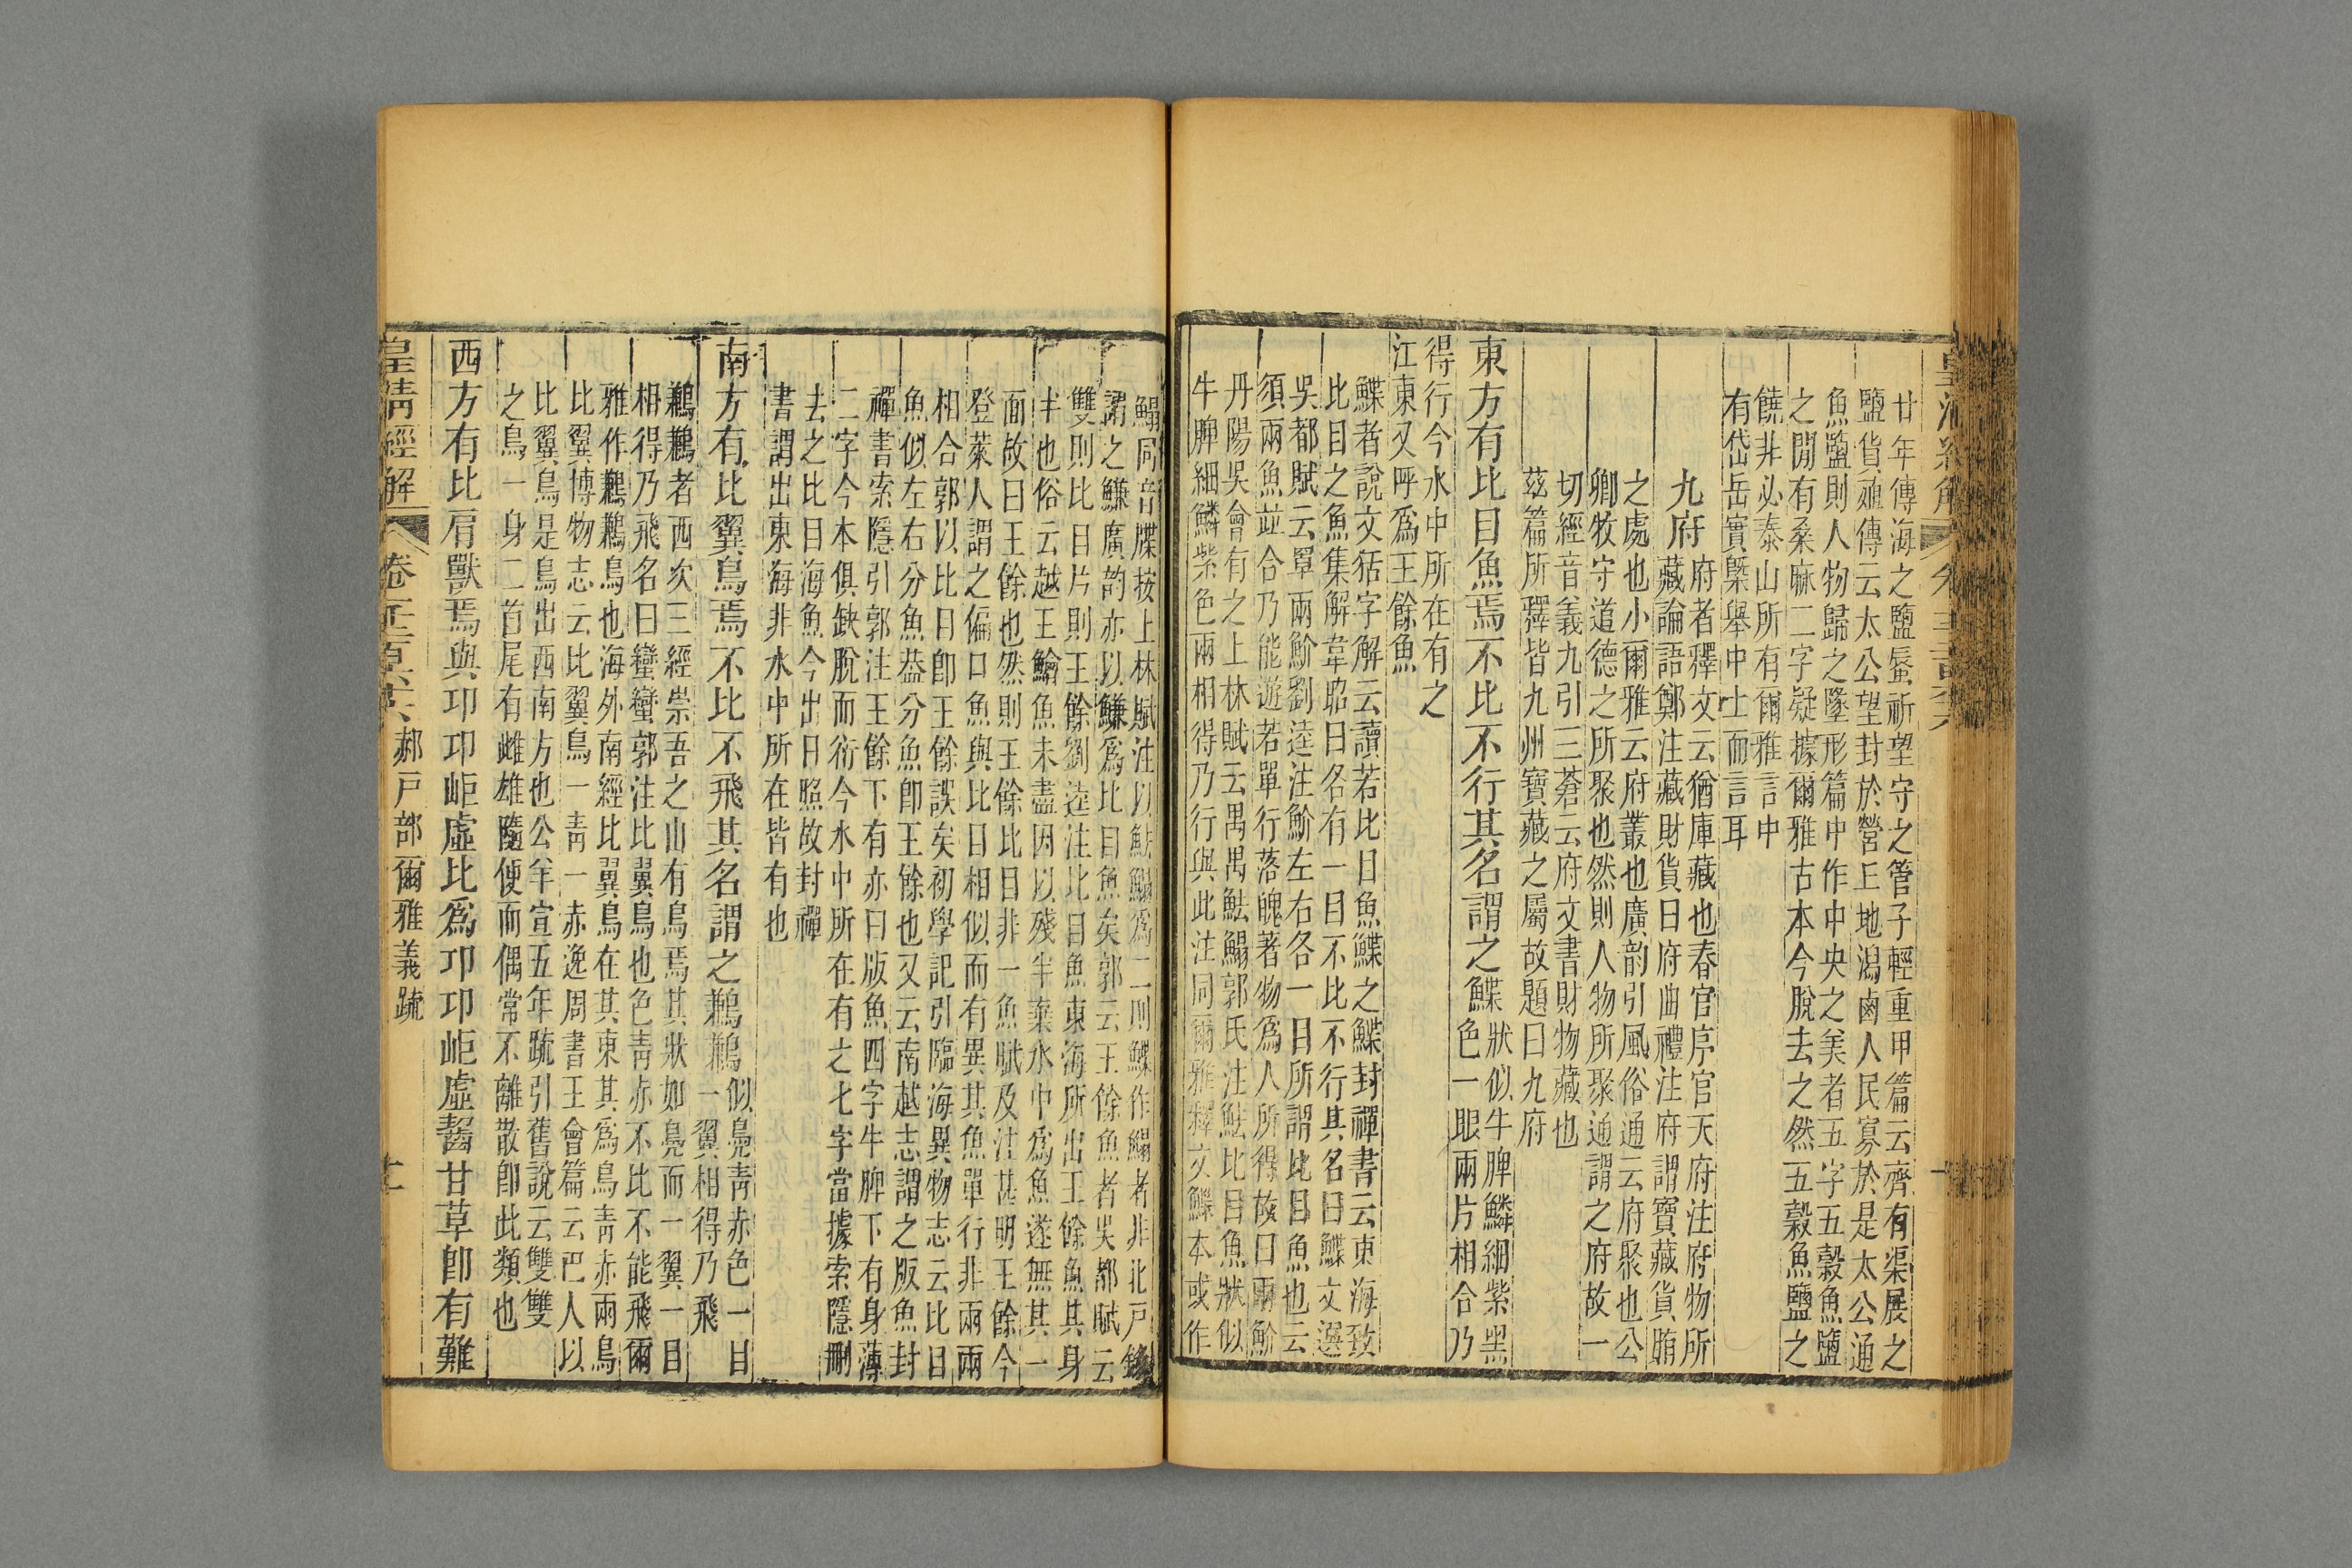 皇清經解
廿年傳海之鹽蜃祈望守之管子輕重甲篇云齊有渠展之
鹽貨殖傳云太公望封於營丘地潟鹵人民寡於是太公通
魚鹽則人物歸之墬形篇中作中央之美者五字五穀魚鹽
之閒有桑麻二字疑據爾雅古本今脫去之然五穀魚鹽之
饒非必泰山所有爾雅言中
有岱岳實槩舉中土而言耳
九府府者釋文云猶庫藏也春官序官天府注府物所
藏論語鄭注藏財貨曰府曲禮注府謂寶藏貨賄
之處也小爾雅云府叢也廣韵引風俗通云府聚也公
卿牧守道德之所聚也然則人物所聚通謂之府故一
切經音義九引三蒼云府文書財物藏也
茲篇所釋皆九州寶藏之屬故題曰九府
東方有比目魚焉不比不行其名謂之鰈狀似牛脾鱗細紫黑
色一眼兩片相合乃
得行今水中所在有之
江東又呼爲王餘魚
鰈者說文狧字解云讀若比目魚鰈之鰈封禪書云東海致
比目之魚集解韋昭曰各有一目不比不行其名曰鰈文選
吳都賦云罩兩魪劉逵注魪左右各一目所謂比目魚也云
須兩魚並合乃能遊若單行落魄著物爲人所得故曰兩魪
丹陽吳會有之上林賦云禺禺魼鰨郭氏注魼比目魚狀似
牛脾細鱗紫色兩相得乃行與此注同爾雅釋文鰈本或作
鰨同音牒按上林賦注以魼鰨爲二則鰈作鰨者非北戶錄
謂之鰜廣韵亦以鰜爲比目魚矣郭云王餘魚者吳都賦云
雙則比目片則王餘劉逵注比目魚東海所出王餘魚其身
半也俗云越王鱠魚未盡因以殘半棄水中爲魚遂無其一
面故曰王餘也然則王餘比目非一魚賦及注甚明王餘今
登萊人謂之偏口魚與比目相似而有異其魚單行非兩兩
相合郭以比目卽王餘誤矣初學記引臨海異物志云比目
魚似左右分魚葢分魚卽王餘也又云南越志謂之版魚封
禪書索隱引郭注王餘下有亦曰版魚四字牛脾下有身薄
二字今本俱缺脫而衍今水中所在有之七字當據索隱刪
去之比目海魚今出日照故封禪
書謂出東海非水中所在皆有也
南方有比翼鳥焉不比不飛其名謂之鶼鶼似鳧靑赤色一目
一翼相得乃飛
鶼鶼者西次三經崇吾之山有鳥焉其狀如鳧而一翼一目
相得乃飛名曰蠻蠻郭注比翼鳥也色靑赤不比不能飛爾
雅作鶼鶼鳥也海外南經比翼鳥在其東其爲鳥靑赤兩鳥
比翼博物志云比翼鳥一靑一赤逸周書王會篇云巴人以
比翼鳥是鳥出西南方也公羊宣五年疏引舊說云雙雙
之鳥一身二首尾有雌雄隨便而偶常不離散卽此類也
西方有比肩獸焉與邛邛岠虛比爲邛邛岠虛齧甘草卽有難
皇清經解 卷千二百六十六 郝戶部爾雅義疏